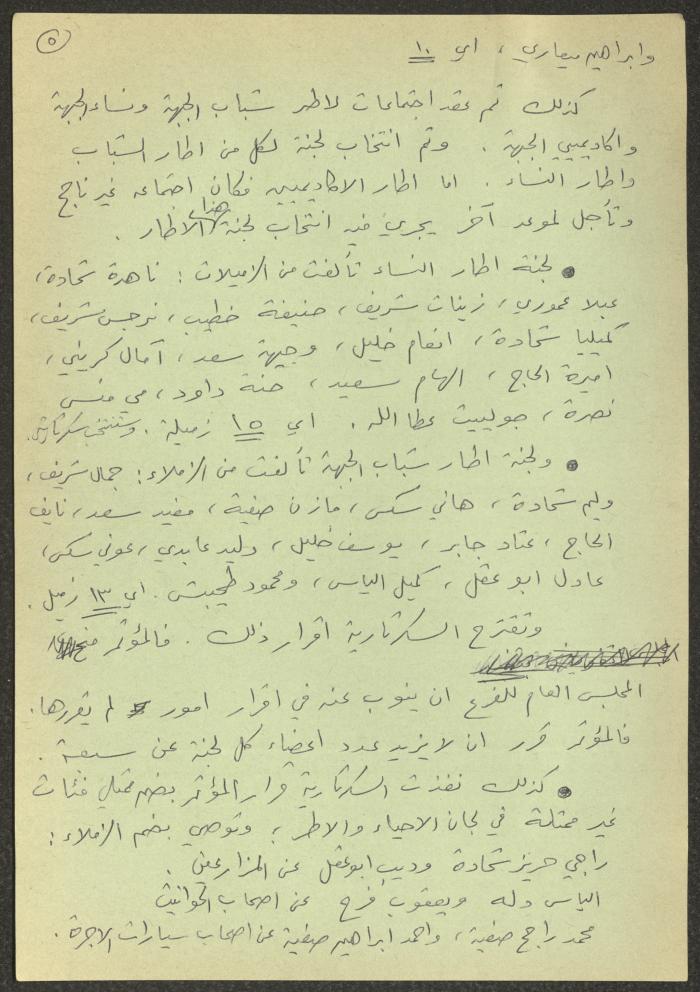 ٥
وابراهيم بيعاري، اي ١٠
كذلك تم عقد اجتماعات لاطر شباب الجبهة ونساء الجبهة
واكاديميي الجبهة. وتم انتخاب لجنة لكل من اطار الشباب
واطار النساء. اما اطار الاكاديميين فكان اجتماعه غير ناجح
وتأجل لموعد آخر يجري فيه انتخاب لجنة هذا الاطار.
● لجنة اطار النساء تألفت من الزميلات: ناهدة شحادة،
عبلا عموري، زينات شريف، حنيفة خطيب، نرجس شريف،
كميليا شحادة، انعام خليل، وجيهة سعد، آمال كريني،
اميرة الحاج، الهام سعيد، حنة داود، مي منسى
نصرة، جولييت عطا الله. اي ١٥ زميلة. وستنتخب سكرتارتي.
● ولجنة اطار شباب الجبهة تألفت من الزملاء: جمال شريف،
وليم شحادة، هاني سكس، مازن صفية، مفيد سعد، نايف
الحاج، عناد جابر، يوسف خليل، وليد عابدي، عوني سكس،
عادل ابو عقل، كميل الياس، ومحمود طحيبش. اي ١٣ زميل.
وتقترح السكرتارية اقرار ذلك. فالمؤتمر منح
المجلس العام للفرع ان ينوب عنه في اقرار امور لم يقررها.
فالمؤتمر قرر ان لا يزيد عدد اعضاء كل لجنة عن سبعة.
● كذلك نفذت السكرتارية قرار المؤتمر بضم ممثلي فئات
غير ممثلة في لجان الاحياء والاطر، وتوصي بضم الزملاء:
راجي حريز شحادة وديب ابو عقل عن المزارعين.
الياس دله ويعقوب فرح عن اصحاب الحوانيت
محمد راجح صفية، واحمد ابراهيم صفية عن اصحاب سيارات الاجرة.